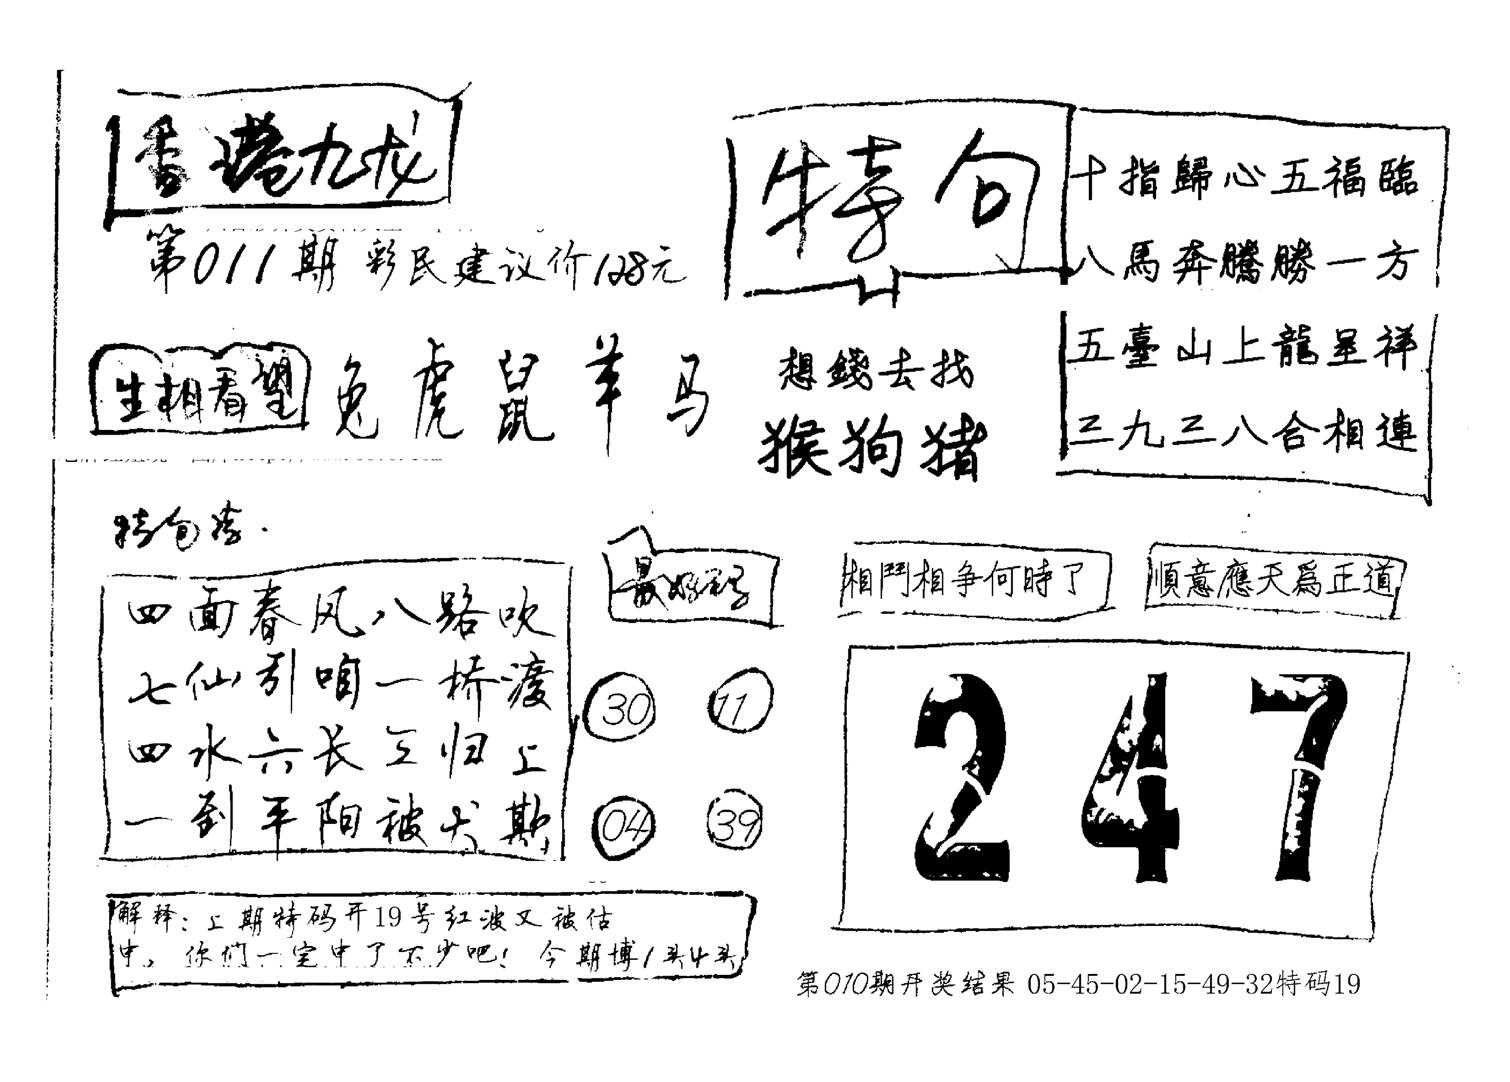 香港九龙
第011期 彩民建议价128元
特句
十指歸心五福臨
八馬奔騰勝一方
五臺山上龍呈祥
三九三八合相連
生相看望 兔 虎 鼠 羊 马
想錢去找
猴狗猪
特包湾.
四面春风八路吹
七仙引咱一桥渡
四水六长三归上
一到平阳被犬欺
最好码
30 11
04 39
相鬥相争何時了
順意應天爲正道
247
解释：上期特码开19号红波又被估
中，你们一定中了不少吧！今期博1头4头
第010期开奖结果 05-45-02-15-49-32特码19